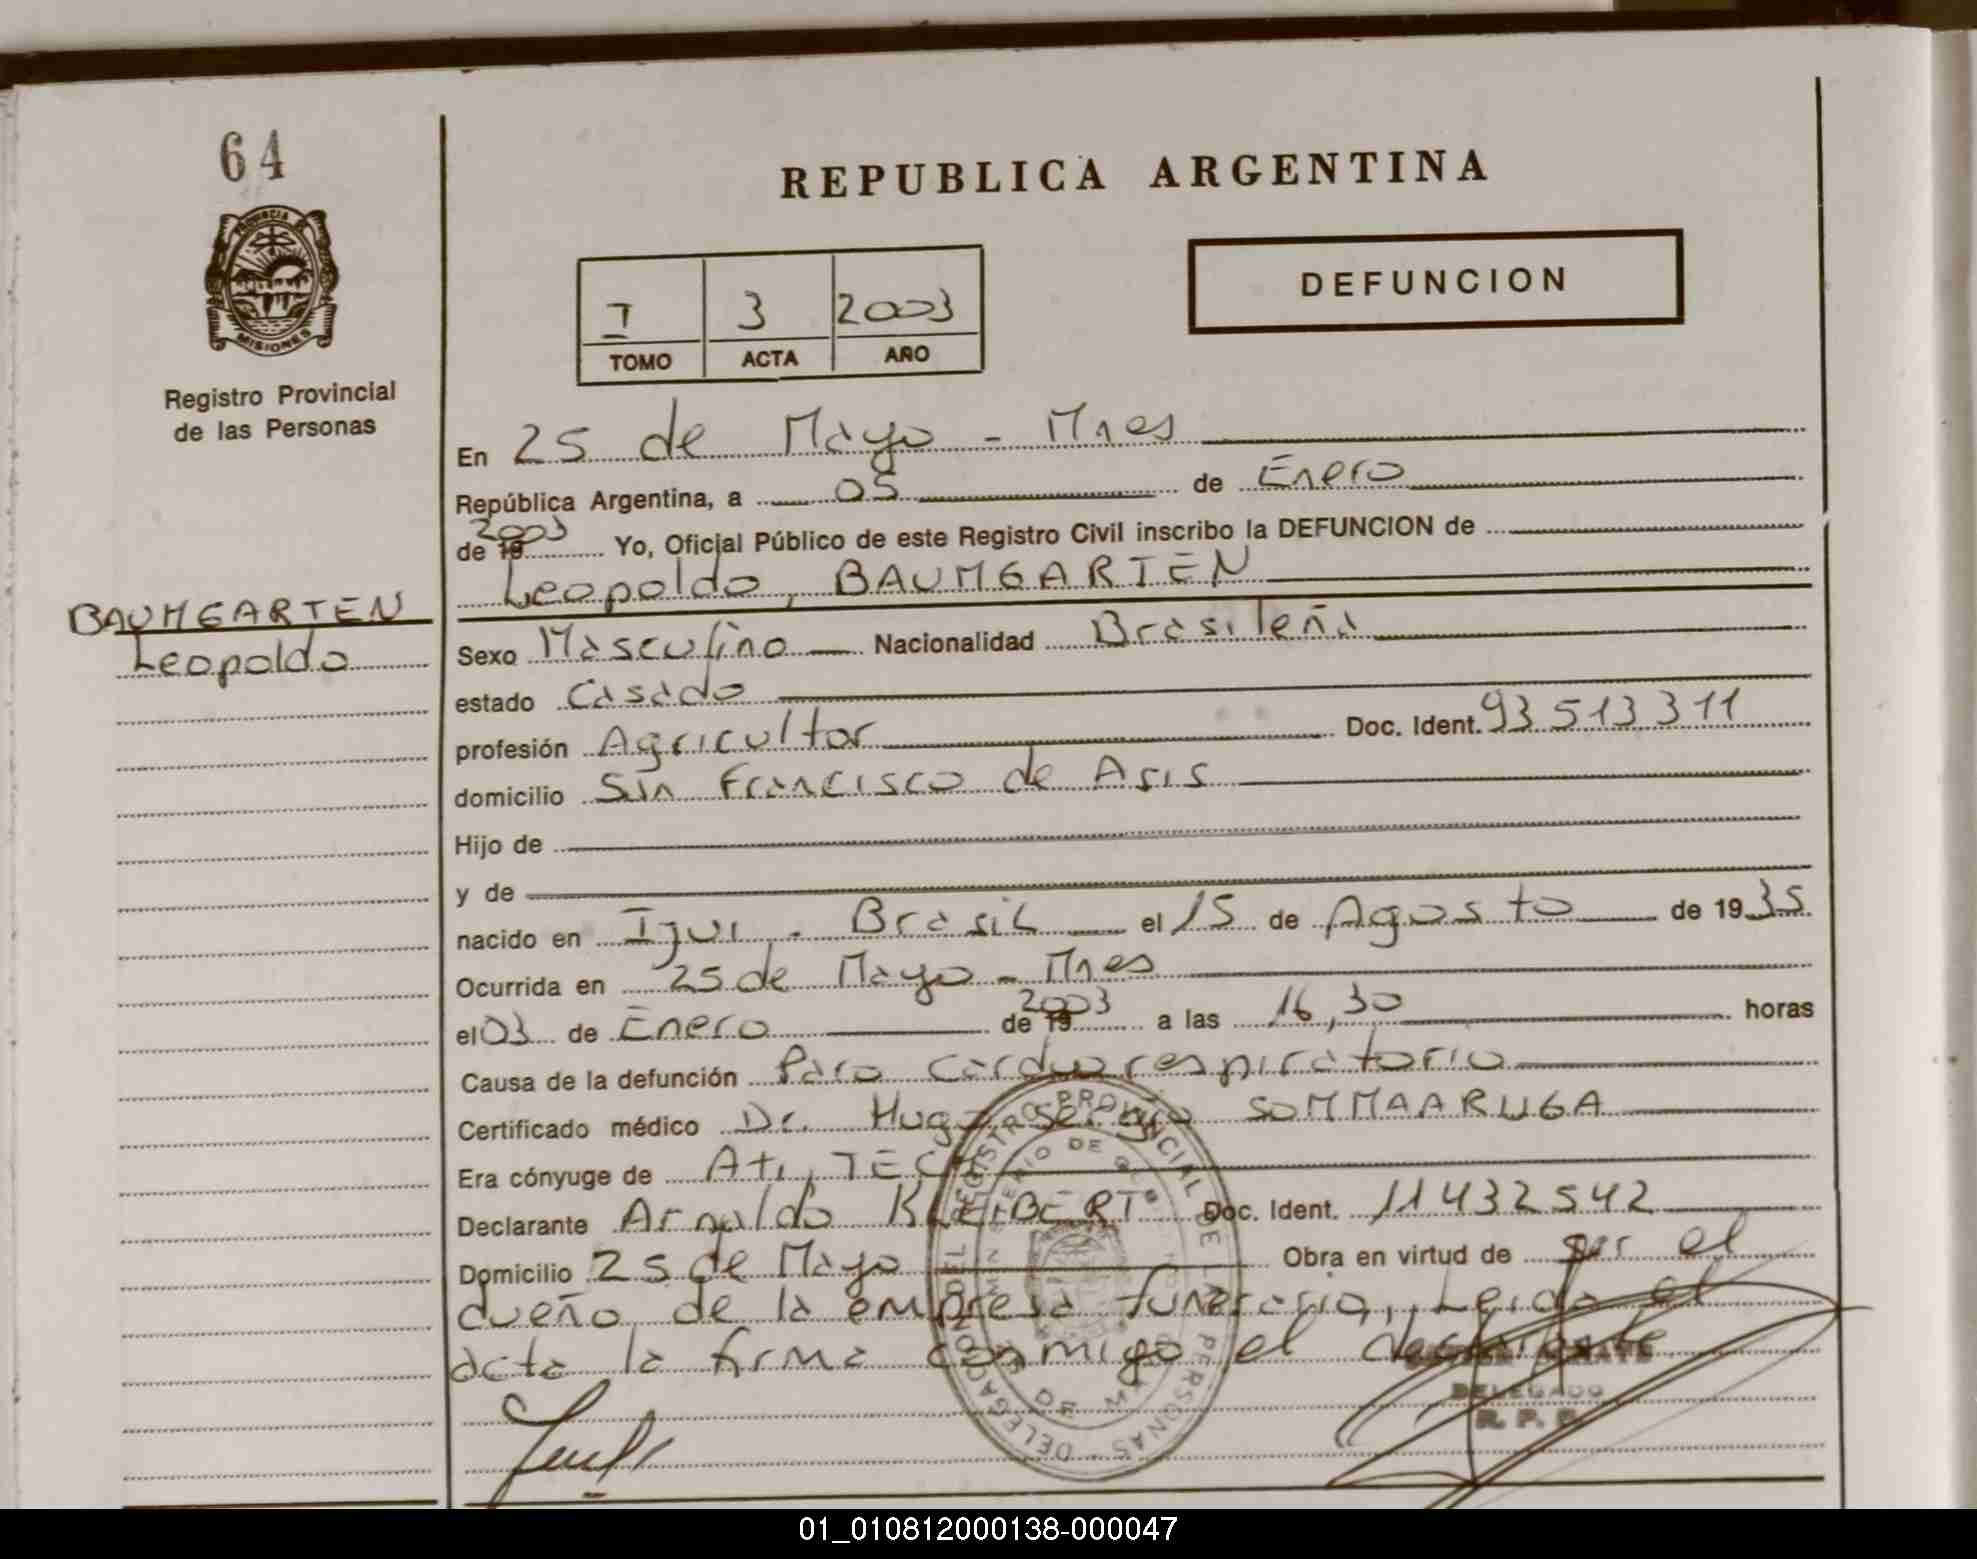 64
REPUBLICA ARGENTINA
PROVINCIA DE
MISIONES
Registro Provincial
de las Personas
DEFUNCION
I 3 2003
TOMO ACTA AÑO
En 25 de Mayo - Mnes
República Argentina, a 05 de Enero
de 19 2003 Yo, Oficial Público de este Registro Civil inscribo la DEFUNCION de
Leopoldo, BAUMGARTEN
BAUMGARTEN
Leopoldo
Sexo Masculino Nacionalidad Brasileña
estado Casado
profesión Agricultor Doc. Ident. 93513311
domicilio San Francisco de Asis
Hijo de
y de
nacido en Ijui - Brasil el 15 de Agosto de 1935
Ocurrida en 25 de Mayo - Mnes
el 03 de Enero de 19 2003 a las 16,30 horas
Causa de la defunción Paro cardiorespiratorio
Certificado médico Dr. Hugo Sergio SOMMAARUGA
Era cónyuge de
Declarante Arnaldo KLEIBERT Doc. Ident. 11432542
Domicilio 25 de Mayo Obra en virtud de ser el
dueño de la empresa funeraria, Leida el
acta la firma conmigo el declarante
REGISTRO PROVINCIAL DE LAS PERSONAS - DELEGACION
DELEGADO
R. P. P.
01_010812000138-000047